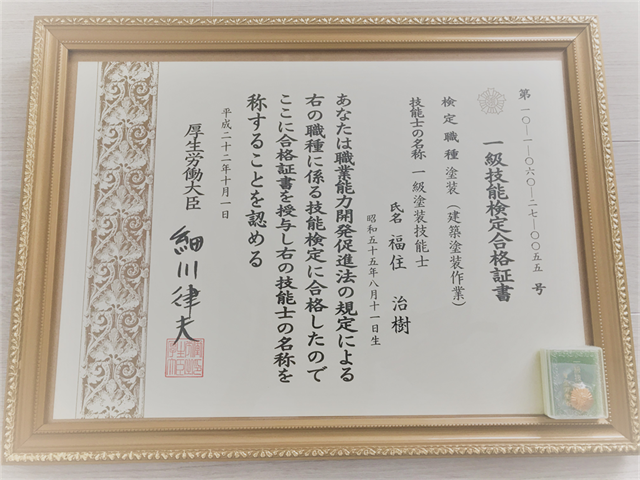 第一〇―一―〇六〇―二七―〇〇五五号
一級技能検定合格証書
検定職種 塗装(建築塗装作業)
技能士の名称 一級塗装技能士
氏名 福住 治樹
昭和五十五年八月十一日生
あなたは職業能力開発促進法の規定による
右の職種に係る技能検定に合格したので
ここに合格証書を授与し右の技能士の名称を
称することを認める
平成二十二年十月一日
厚生労働大臣 細川律夫